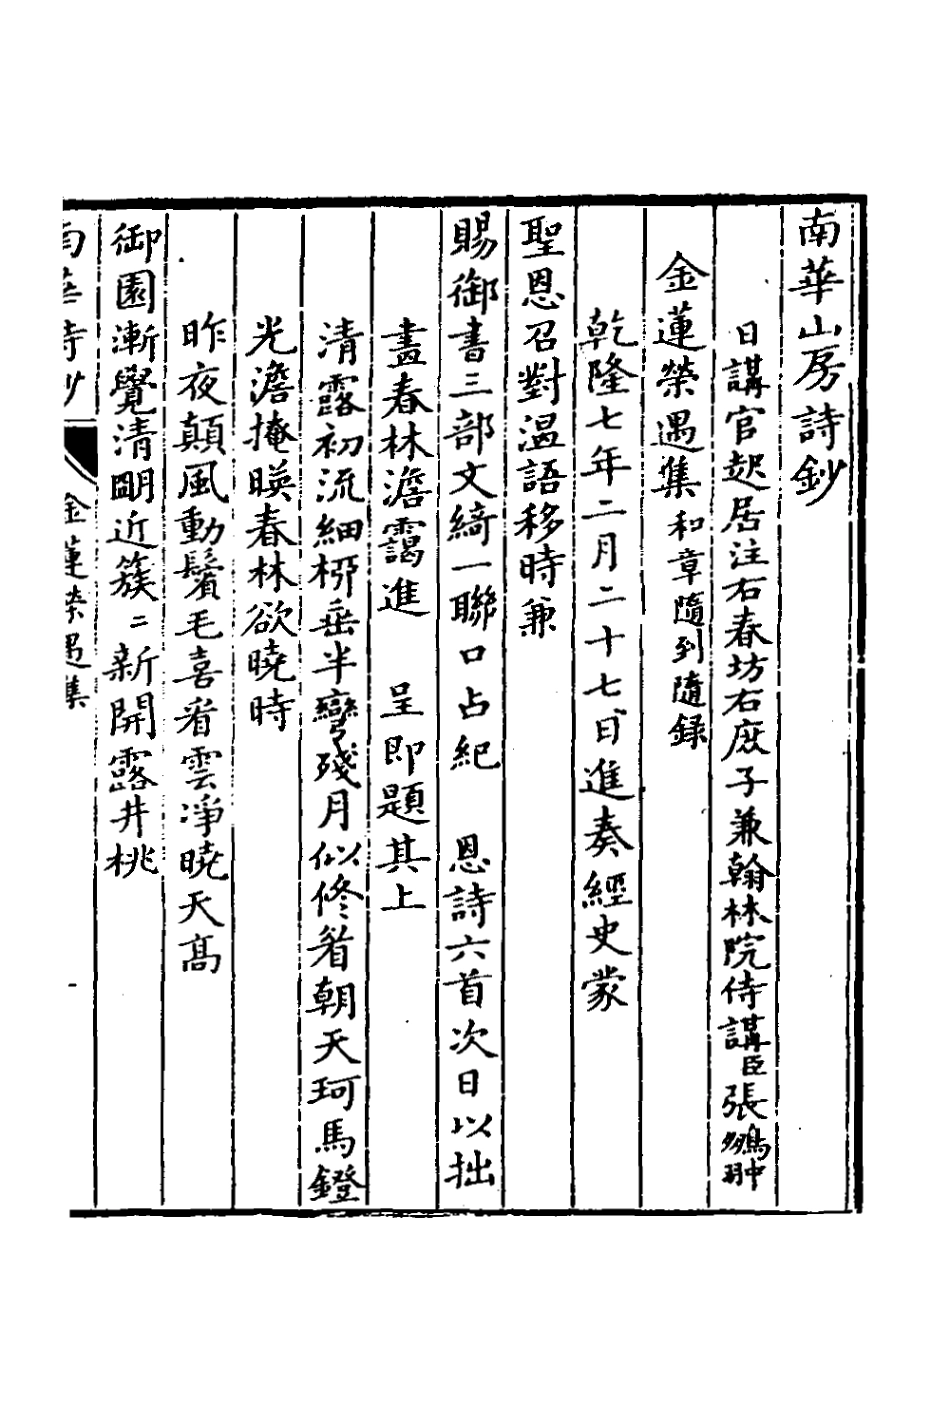 南華山房詩鈔
日講官起居注右春坊右庶子兼翰林院侍講臣張鵬翀
金蓮榮遇集和章隨到隨錄
乾隆七年二月二十七日進奏經史蒙
聖恩召對温語移時兼
賜御書三部文綺一聯口占紀 恩詩六首次日以拙
畫春林澹靄進 呈即題其上
清露初流細栁垂半彎殘月似修眉朝天珂馬鐙
光澹掩暎春林欲曉時
昨夜顛風動鬢毛喜看雲凈曉天高
御園漸覺清明近簇二新開露井桃
南華詩鈔 金蓮榮遇集